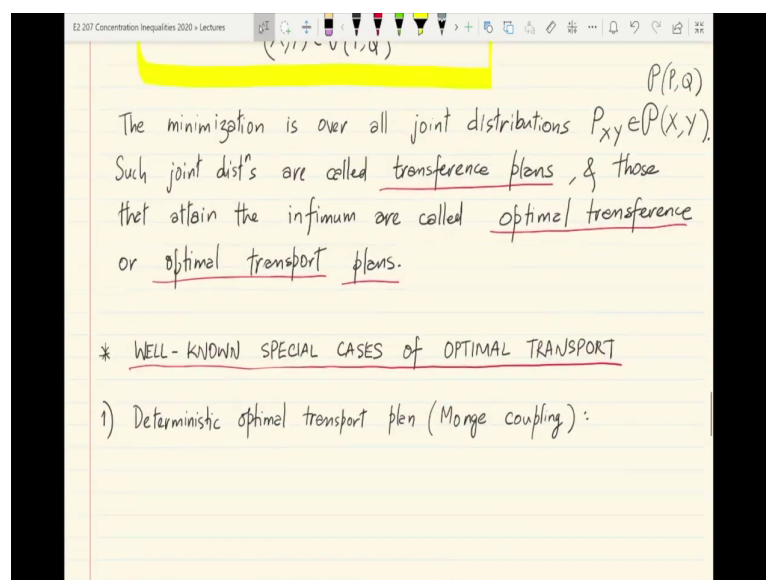 E2 207 Concentration Inequalities 2020 » Lectures
P(P,Q)
The minimization is over all joint distributions P_XY ∈ P(X,Y).
Such joint distⁿs are called transference plans, & those
that attain the infimum are called optimal transference
or optimal transport plans.
* WELL-KNOWN SPECIAL CASES of OPTIMAL TRANSPORT
1) Deterministic optimal transport plan (Monge coupling):